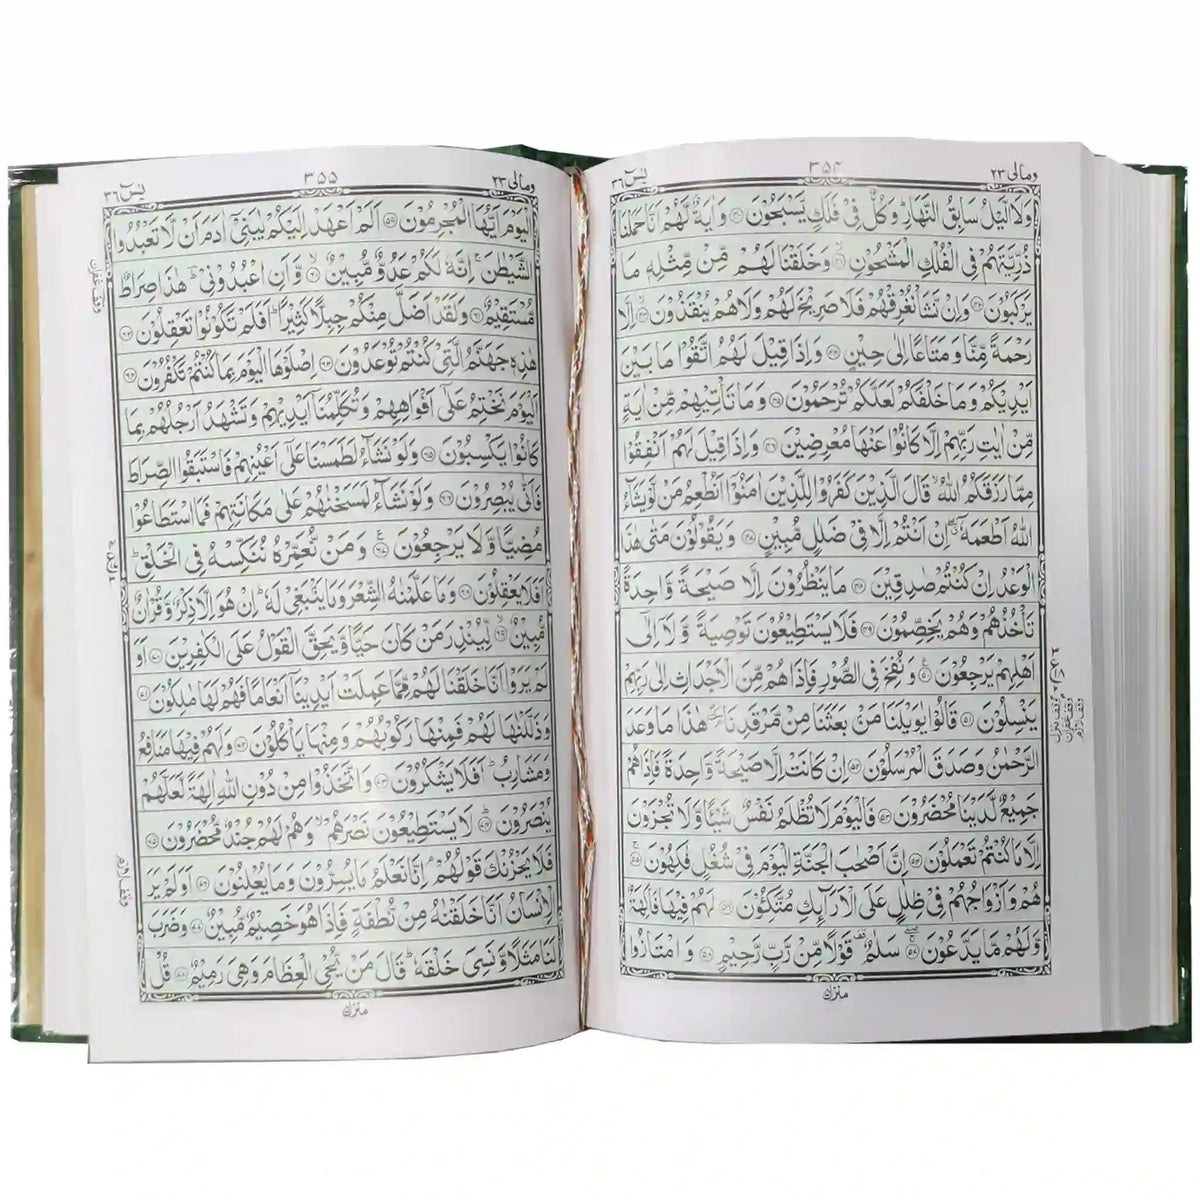 ومالی ۲۳
۳۵۴
یٰسٓ ۳۶
وَلَا الَّيْلُ سَابِقُ النَّهَارِ ؕ وَكُلٌّ فِيْ فَلَكٍ يَّسْبَحُوْنَ ﴿۴۰﴾ وَاٰيَةٌ لَّهُمْ اَنَّا حَمَلْنَا
ذُرِّيَّتَهُمْ فِي الْفُلْكِ الْمَشْحُوْنِ ﴿۴۱﴾ وَخَلَقْنَا لَهُمْ مِّنْ مِّثْلِهٖ مَا
يَرْكَبُوْنَ ﴿۴۲﴾ وَاِنْ نَّشَاْ نُغْرِقْهُمْ فَلَا صَرِيْخَ لَهُمْ وَلَا هُمْ يُنْقَذُوْنَ ﴿۴۳﴾ اِلَّا
رَحْمَةً مِّنَّا وَ مَتَاعًا اِلٰى حِيْنٍ ﴿۴۴﴾ وَاِذَا قِيْلَ لَهُمُ اتَّقُوْا مَا بَيْنَ
اَيْدِيْكُمْ وَمَا خَلْفَكُمْ لَعَلَّكُمْ تُرْحَمُوْنَ ﴿۴۵﴾ وَمَا تَاْتِيْهِمْ مِّنْ اٰيَةٍ
مِّنْ اٰيٰتِ رَبِّهِمْ اِلَّا كَانُوْا عَنْهَا مُعْرِضِيْنَ ﴿۴۶﴾ وَاِذَا قِيْلَ لَهُمْ اَنْفِقُوْا
مِمَّا رَزَقَكُمُ اللّٰهُ ۙ قَالَ الَّذِيْنَ كَفَرُوْا لِلَّذِيْنَ اٰمَنُوْا اَنُطْعِمُ مَنْ لَّوْ يَشَآءُ
اللّٰهُ اَطْعَمَهٗۤ ۖ اِنْ اَنْتُمْ اِلَّا فِيْ ضَلٰلٍ مُّبِيْنٍ ﴿۴۷﴾ وَيَقُوْلُوْنَ مَتٰى هٰذَا
الْوَعْدُ اِنْ كُنْتُمْ صٰدِقِيْنَ ﴿۴۸﴾ مَا يَنْظُرُوْنَ اِلَّا صَيْحَةً وَّاحِدَةً
تَاْخُذُهُمْ وَهُمْ يَخِصِّمُوْنَ ﴿۴۹﴾ فَلَا يَسْتَطِيْعُوْنَ تَوْصِيَةً وَّ لَاۤ اِلٰۤى
اَهْلِهِمْ يَرْجِعُوْنَ ﴿۵۰﴾ وَ نُفِخَ فِي الصُّوْرِ فَاِذَا هُمْ مِّنَ الْاَجْدَاثِ اِلٰى رَبِّهِمْ
يَنْسِلُوْنَ ﴿۵۱﴾ قَالُوْا يٰوَيْلَنَا مَنْۢ بَعَثَنَا مِنْ مَّرْقَدِنَا ۘ هٰذَا مَا وَعَدَ
الرَّحْمٰنُ وَصَدَقَ الْمُرْسَلُوْنَ ﴿۵۲﴾ اِنْ كَانَتْ اِلَّا صَيْحَةً وَّاحِدَةً فَاِذَا هُمْ
جَمِيْعٌ لَّدَيْنَا مُحْضَرُوْنَ ﴿۵۳﴾ فَالْيَوْمَ لَا تُظْلَمُ نَفْسٌ شَيْـًٔا وَّلَا تُجْزَوْنَ
اِلَّا مَا كُنْتُمْ تَعْمَلُوْنَ ﴿۵۴﴾ اِنَّ اَصْحٰبَ الْجَنَّةِ الْيَوْمَ فِيْ شُغُلٍ فٰكِهُوْنَ ﴿۵۵﴾
هُمْ وَاَزْوَاجُهُمْ فِيْ ظِلٰلٍ عَلَى الْاَرَآئِكِ مُتَّكِـُٔوْنَ ﴿۵۶﴾ لَهُمْ فِيْهَا فَاكِهَةٌ
وَّلَهُمْ مَّا يَدَّعُوْنَ ﴿۵۷﴾ سَلٰمٌ ۟ قَوْلًا مِّنْ رَّبٍّ رَّحِيْمٍ ﴿۵۸﴾ وَ امْتَازُوا
منزل
ومالی ۲۳
۳۵۵
یٰسٓ ۳۶
الْيَوْمَ اَيُّهَا الْمُجْرِمُوْنَ ﴿۵۹﴾ اَلَمْ اَعْهَدْ اِلَيْكُمْ يٰبَنِيْۤ اٰدَمَ اَنْ لَّا تَعْبُدُوا
الشَّيْطٰنَ ۚ اِنَّهٗ لَكُمْ عَدُوٌّ مُّبِيْنٌ ﴿۶۰﴾ وَّ اَنِ اعْبُدُوْنِيْ ؕ هٰذَا صِرَاطٌ
مُّسْتَقِيْمٌ ﴿۶۱﴾ وَلَقَدْ اَضَلَّ مِنْكُمْ جِبِلًّا كَثِيْرًا ؕ اَفَلَمْ تَكُوْنُوْا تَعْقِلُوْنَ ﴿۶۲﴾
هٰذِهٖ جَهَنَّمُ الَّتِيْ كُنْتُمْ تُوْعَدُوْنَ ﴿۶۳﴾ اِصْلَوْهَا الْيَوْمَ بِمَا كُنْتُمْ تَكْفُرُوْنَ ﴿۶۴﴾
اَلْيَوْمَ نَخْتِمُ عَلٰۤى اَفْوَاهِهِمْ وَتُكَلِّمُنَاۤ اَيْدِيْهِمْ وَتَشْهَدُ اَرْجُلُهُمْ بِمَا
كَانُوْا يَكْسِبُوْنَ ﴿۶۵﴾ وَلَوْ نَشَآءُ لَطَمَسْنَا عَلٰۤى اَعْيُنِهِمْ فَاسْتَبَقُوا الصِّرَاطَ
فَاَنّٰى يُبْصِرُوْنَ ﴿۶۶﴾ وَلَوْ نَشَآءُ لَمَسَخْنٰهُمْ عَلٰى مَكَانَتِهِمْ فَمَا اسْتَطَاعُوْا
مُضِيًّا وَّلَا يَرْجِعُوْنَ ﴿۶۷﴾ وَ مَنْ نُّعَمِّرْهُ نُنَكِّسْهُ فِي الْخَلْقِ ؕ
اَفَلَا يَعْقِلُوْنَ ﴿۶۸﴾ وَمَا عَلَّمْنٰهُ الشِّعْرَ وَمَا يَنْۢبَغِيْ لَهٗ ؕ اِنْ هُوَ اِلَّا ذِكْرٌ وَّ قُرْاٰنٌ
مُّبِيْنٌ ﴿۶۹﴾ لِّيُنْذِرَ مَنْ كَانَ حَيًّا وَّيَحِقَّ الْقَوْلُ عَلَى الْكٰفِرِيْنَ ﴿۷۰﴾ اَوَ
لَمْ يَرَوْا اَنَّا خَلَقْنَا لَهُمْ مِّمَّا عَمِلَتْ اَيْدِيْنَاۤ اَنْعَامًا فَهُمْ لَهَا مٰلِكُوْنَ ﴿۷۱﴾
وَ ذَلَّلْنٰهَا لَهُمْ فَمِنْهَا رَكُوْبُهُمْ وَمِنْهَا يَاْكُلُوْنَ ﴿۷۲﴾ وَلَهُمْ فِيْهَا مَنَافِعُ
وَمَشَارِبُ ؕ اَفَلَا يَشْكُرُوْنَ ﴿۷۳﴾ وَاتَّخَذُوْا مِنْ دُوْنِ اللّٰهِ اٰلِهَةً لَّعَلَّهُمْ
يُنْصَرُوْنَ ﴿۷۴﴾ لَا يَسْتَطِيْعُوْنَ نَصْرَهُمْ ۙ وَهُمْ لَهُمْ جُنْدٌ مُّحْضَرُوْنَ ﴿۷۵﴾
فَلَا يَحْزُنْكَ قَوْلُهُمْ ۘ اِنَّا نَعْلَمُ مَا يُسِرُّوْنَ وَمَا يُعْلِنُوْنَ ﴿۷۶﴾ اَوَلَمْ يَرَ
الْاِنْسَانُ اَنَّا خَلَقْنٰهُ مِنْ نُّطْفَةٍ فَاِذَا هُوَ خَصِيْمٌ مُّبِيْنٌ ﴿۷۷﴾ وَضَرَبَ
لَنَا مَثَلًا وَّ نَسِيَ خَلْقَهٗ ؕ قَالَ مَنْ يُّحْيِ الْعِظَامَ وَهِيَ رَمِيْمٌ ﴿۷۸﴾ قُلْ
منزل